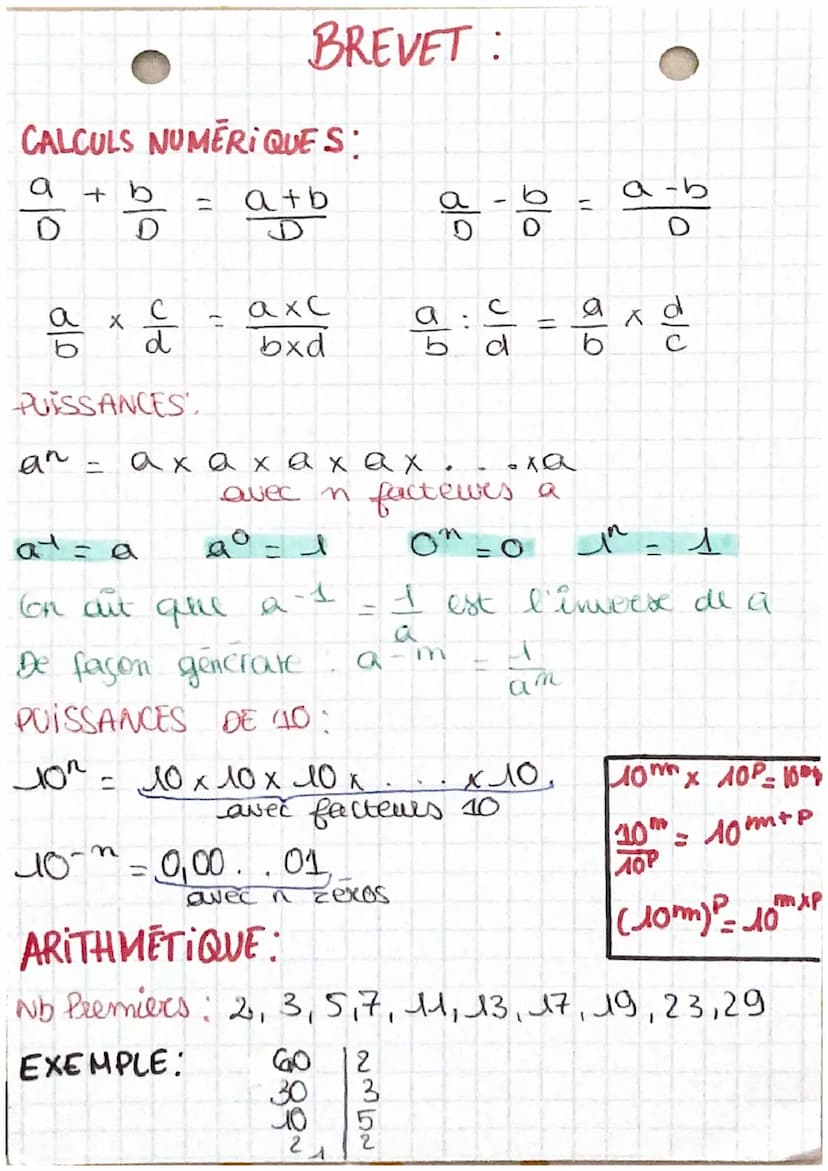 BREVET :
CALCULS NUMÉRIQUES :
a/D + b/D = a+b/D    a/D - b/D = a-b/D
a/b x c/d = axc/bxd    a/b : c/d = a/b x d/c
PUISSANCES :
aⁿ = a x a x a x a x . . . . xa
avec n facteurs a
a¹ = a    a⁰ = 1    0ⁿ = 0    1ⁿ = 1
On dit que a⁻¹ = 1/a est l'inverse de a
De façon générale : a⁻ᵐ = 1/aᵐ
PUISSANCES DE 10 :
10ⁿ = 10 x 10 x 10 x . . . x 10,
avec facteurs 10
10⁻ⁿ = 0,00. . . 01,
avec n zéros
10ᵐ x 10ᵖ =
10ᵐ/10ᵖ = 10ᵐ⁺ᵖ
(10ᵐ)ᵖ = 10ᵐˣᵖ
ARITHMÉTIQUE :
Nb Premiers : 2, 3, 5, 7, 11, 13, 17, 19, 23, 29
EXEMPLE :    60 | 2
30 | 3
10 | 5
2 | 2
1